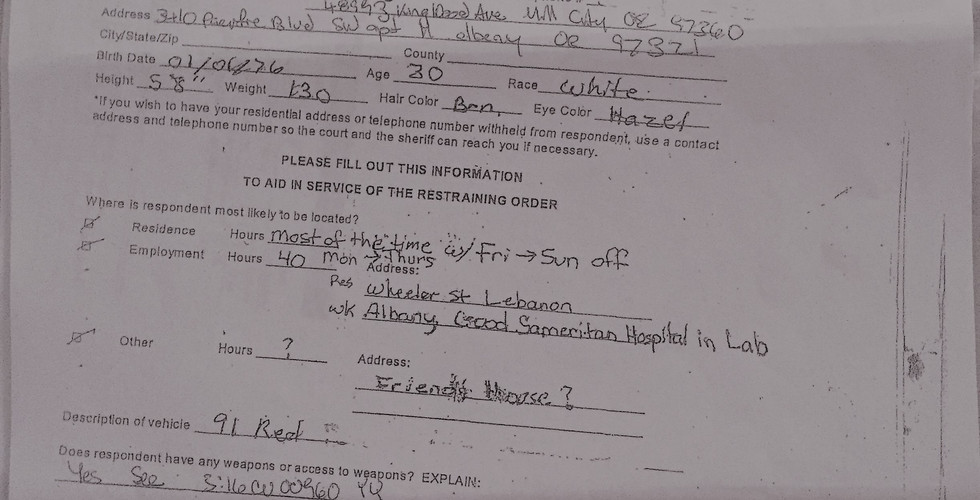 48993 Kingwood Ave. Mill City OR 97360
Address 3410 Blvd SW apt H albany OR 97321
City/State/Zip
County
Birth Date 01/06/76 Age 30 Race White
Height 5'8" Weight 130 Hair Color Brn, Eye Color Hazel
*If you wish to have your residential address or telephone number withheld from respondent, use a contact
address and telephone number so the court and the sheriff can reach you if necessary.
PLEASE FILL OUT THIS INFORMATION
TO AID IN SERVICE OF THE RESTRAINING ORDER
Where is respondent most likely to be located?
Residence Hours most of the time w/ Fri → Sun off
Employment Hours 40 mon → Thurs
Address:
Res Wheeler St Lebanon
wk Albany, Good Sameritan Hospital in Lab
Other Hours ? Address:
Friends House ?
Description of vehicle 91 Red
Does respondent have any weapons or access to weapons? EXPLAIN:
Yes See